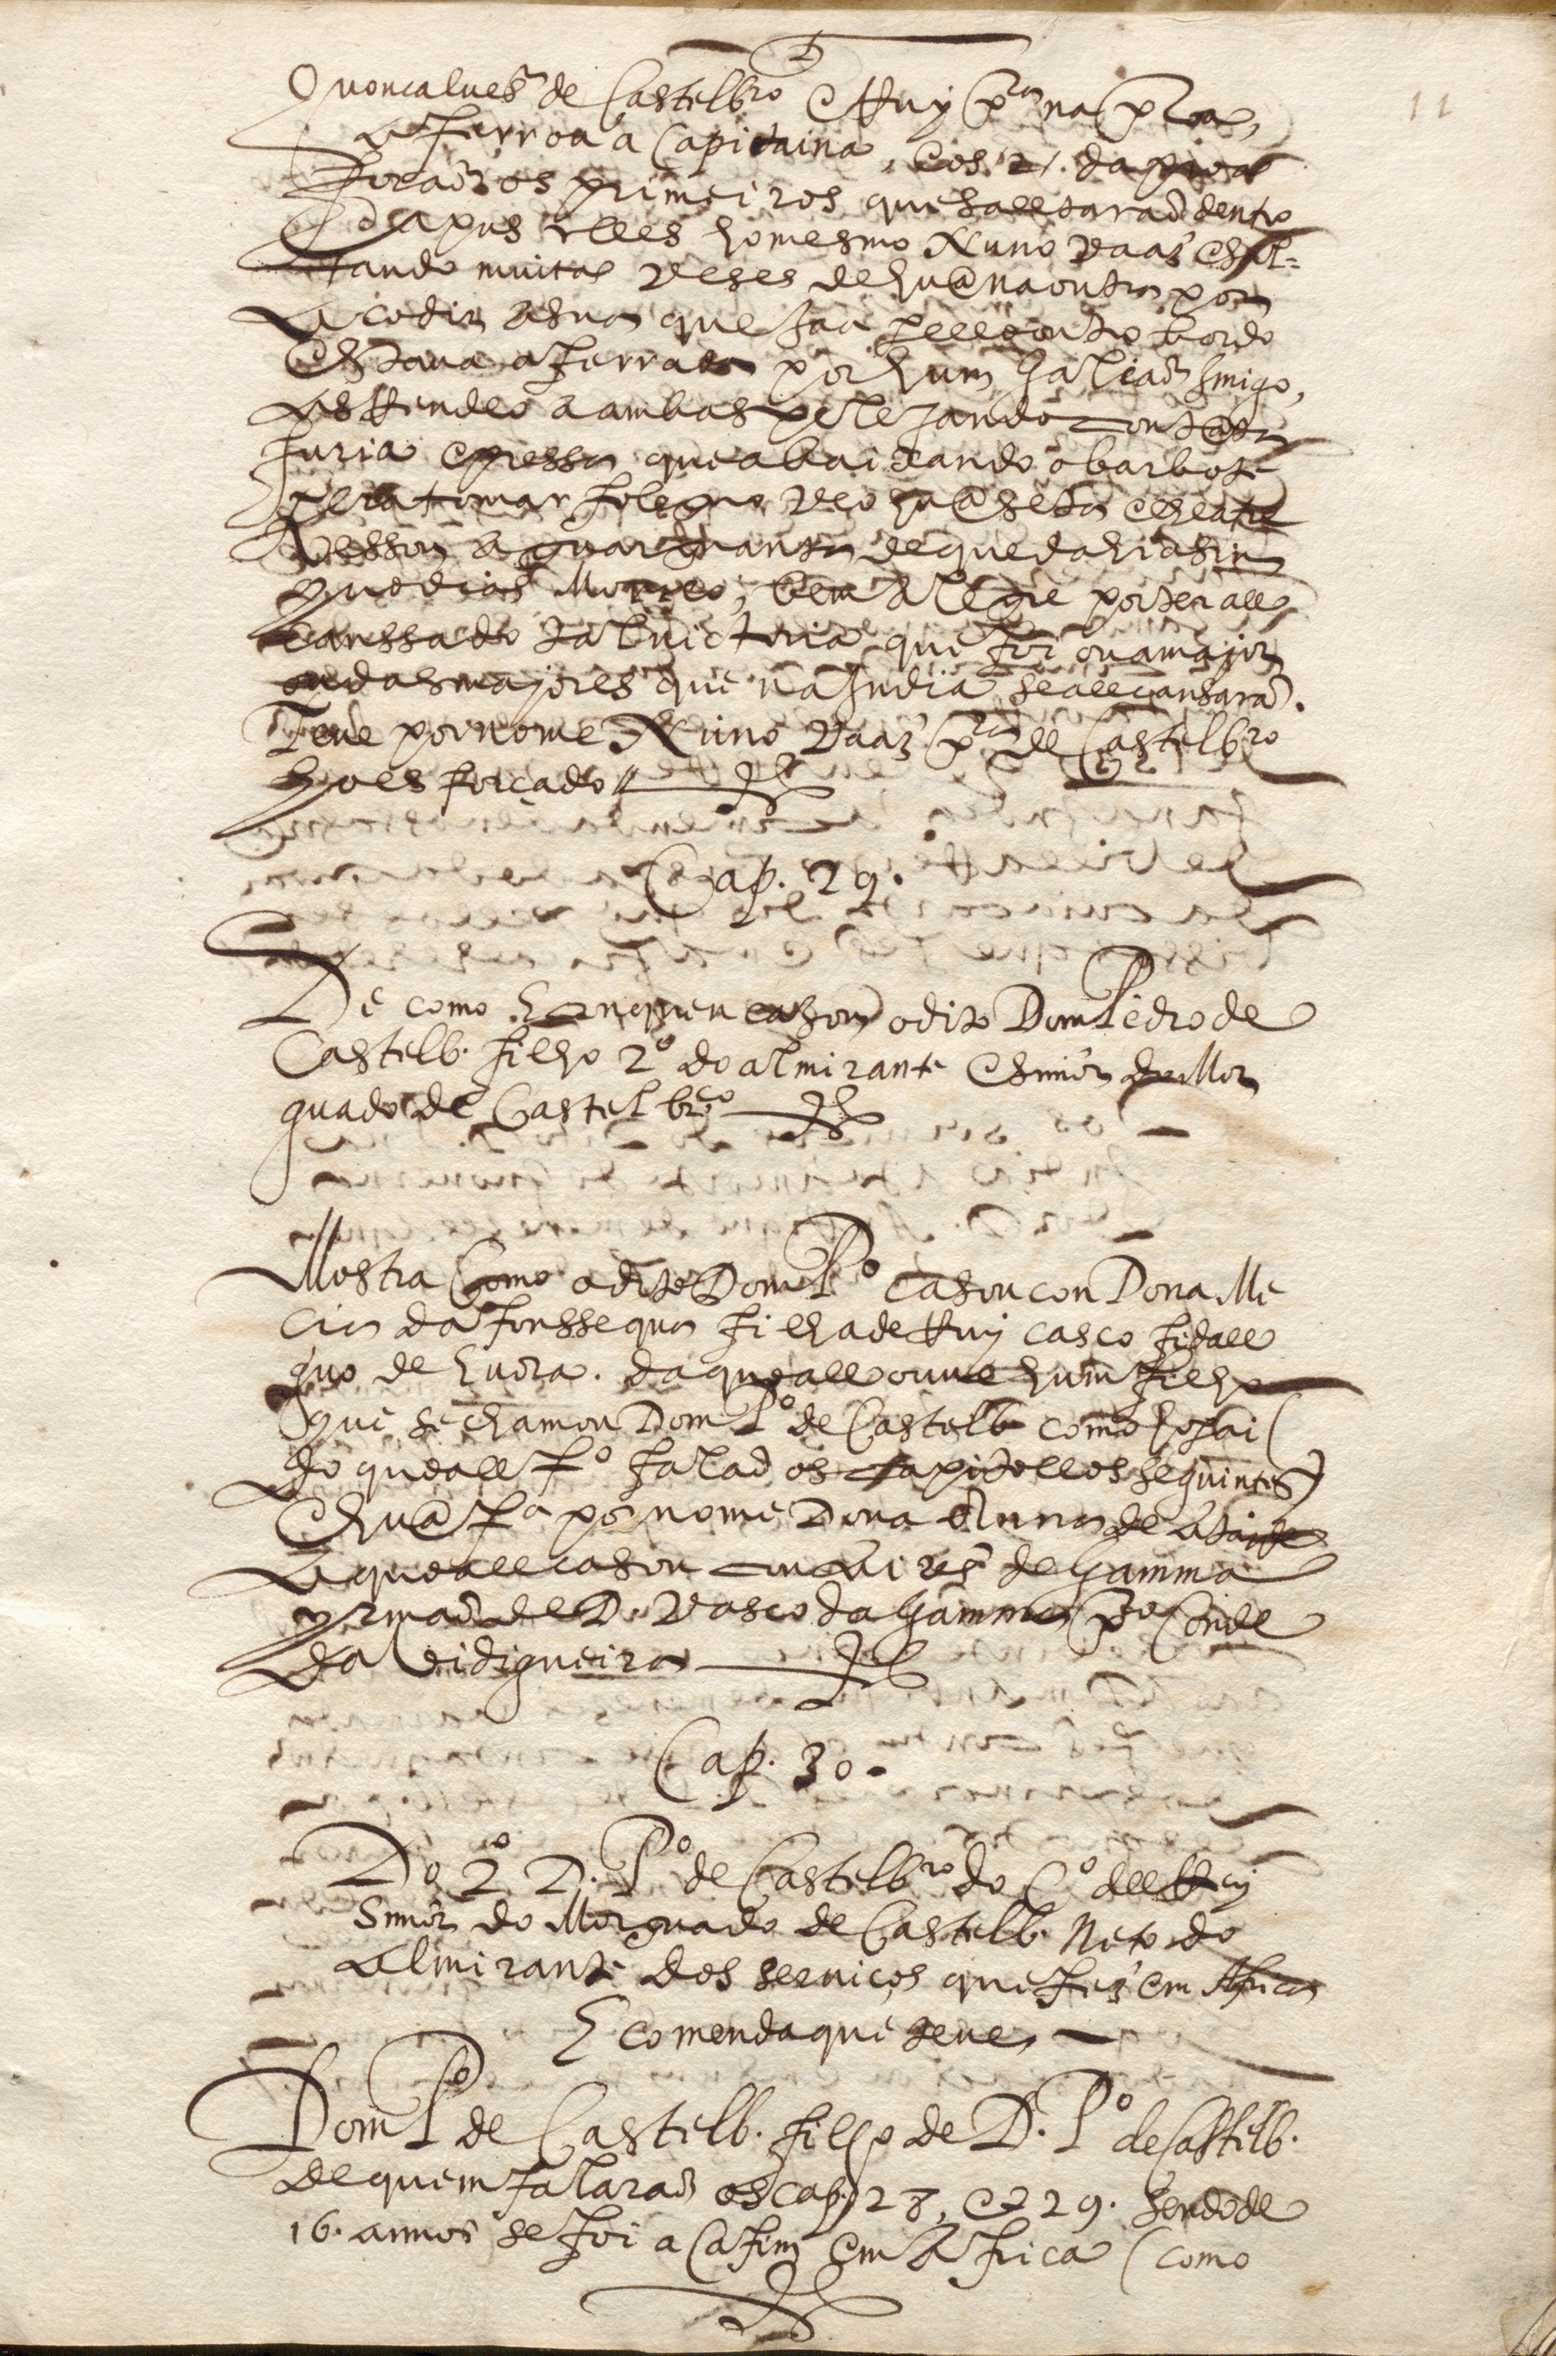 11
Guoncalues de Castelbro E Ruy pra na proa,
Aferroa a Capitaina, E os 2. da proa
forao os primeiros que salltarao dentro
E apus elles ho mesmo Nuno Vaaz E sal=
tando muitas veses de hua na outra por
Acodir a sua que ja pello outro bordo
Estava aferrada por hum galeao Imigo,
As Rendeo a ambas pelejando con tata
furia E pressa que abaixando o barbote
pera tomar folego veo hua seta E lhe atre
vessou a guarguanta de que dahi a sin
quo dias Morreo, bem alegre por ter all
canssado tal victoria que foi ou a mayor
ou das mayores que na India se allcansarao.
Teue por nome Nuno Vaaz pra de Castelbro
ho esforcado //
Cap. 29.
De como E con quem casou o dito Dom Pedro de
Castelb. filho 2º do almirante E snnor do Mor
guado de Castelbrco
Mostra Como o dito Dom Pº casou con Dona Me
cia da fonssequa filha de Ruy casco fidall
guo de Euora. da quall ouue hum filho
que se chamou Dom Pº de Castelb como ho pai (
do quall fº falao os capitollos seguintes)
E hua fª por nome Dona Anna de ataide
A quall casou con Aires de Gamma
yrmao de D. Vasco da Gamma pro Conde
da Vidigueira
Cap. 30.
Do 2º D. Pº de Castelbro do Cº dell Rey
Snnor do Morguado de Castelb. Neto do
Almirante dos seruiços que fez em Africa
E comenda que teue
Dom Pº de Castelb. filho de D. Pº de Castelb.
de quem falarao os cap. 28, E 29. sendo de
16. annos se foi a Cafim Em Africa (como